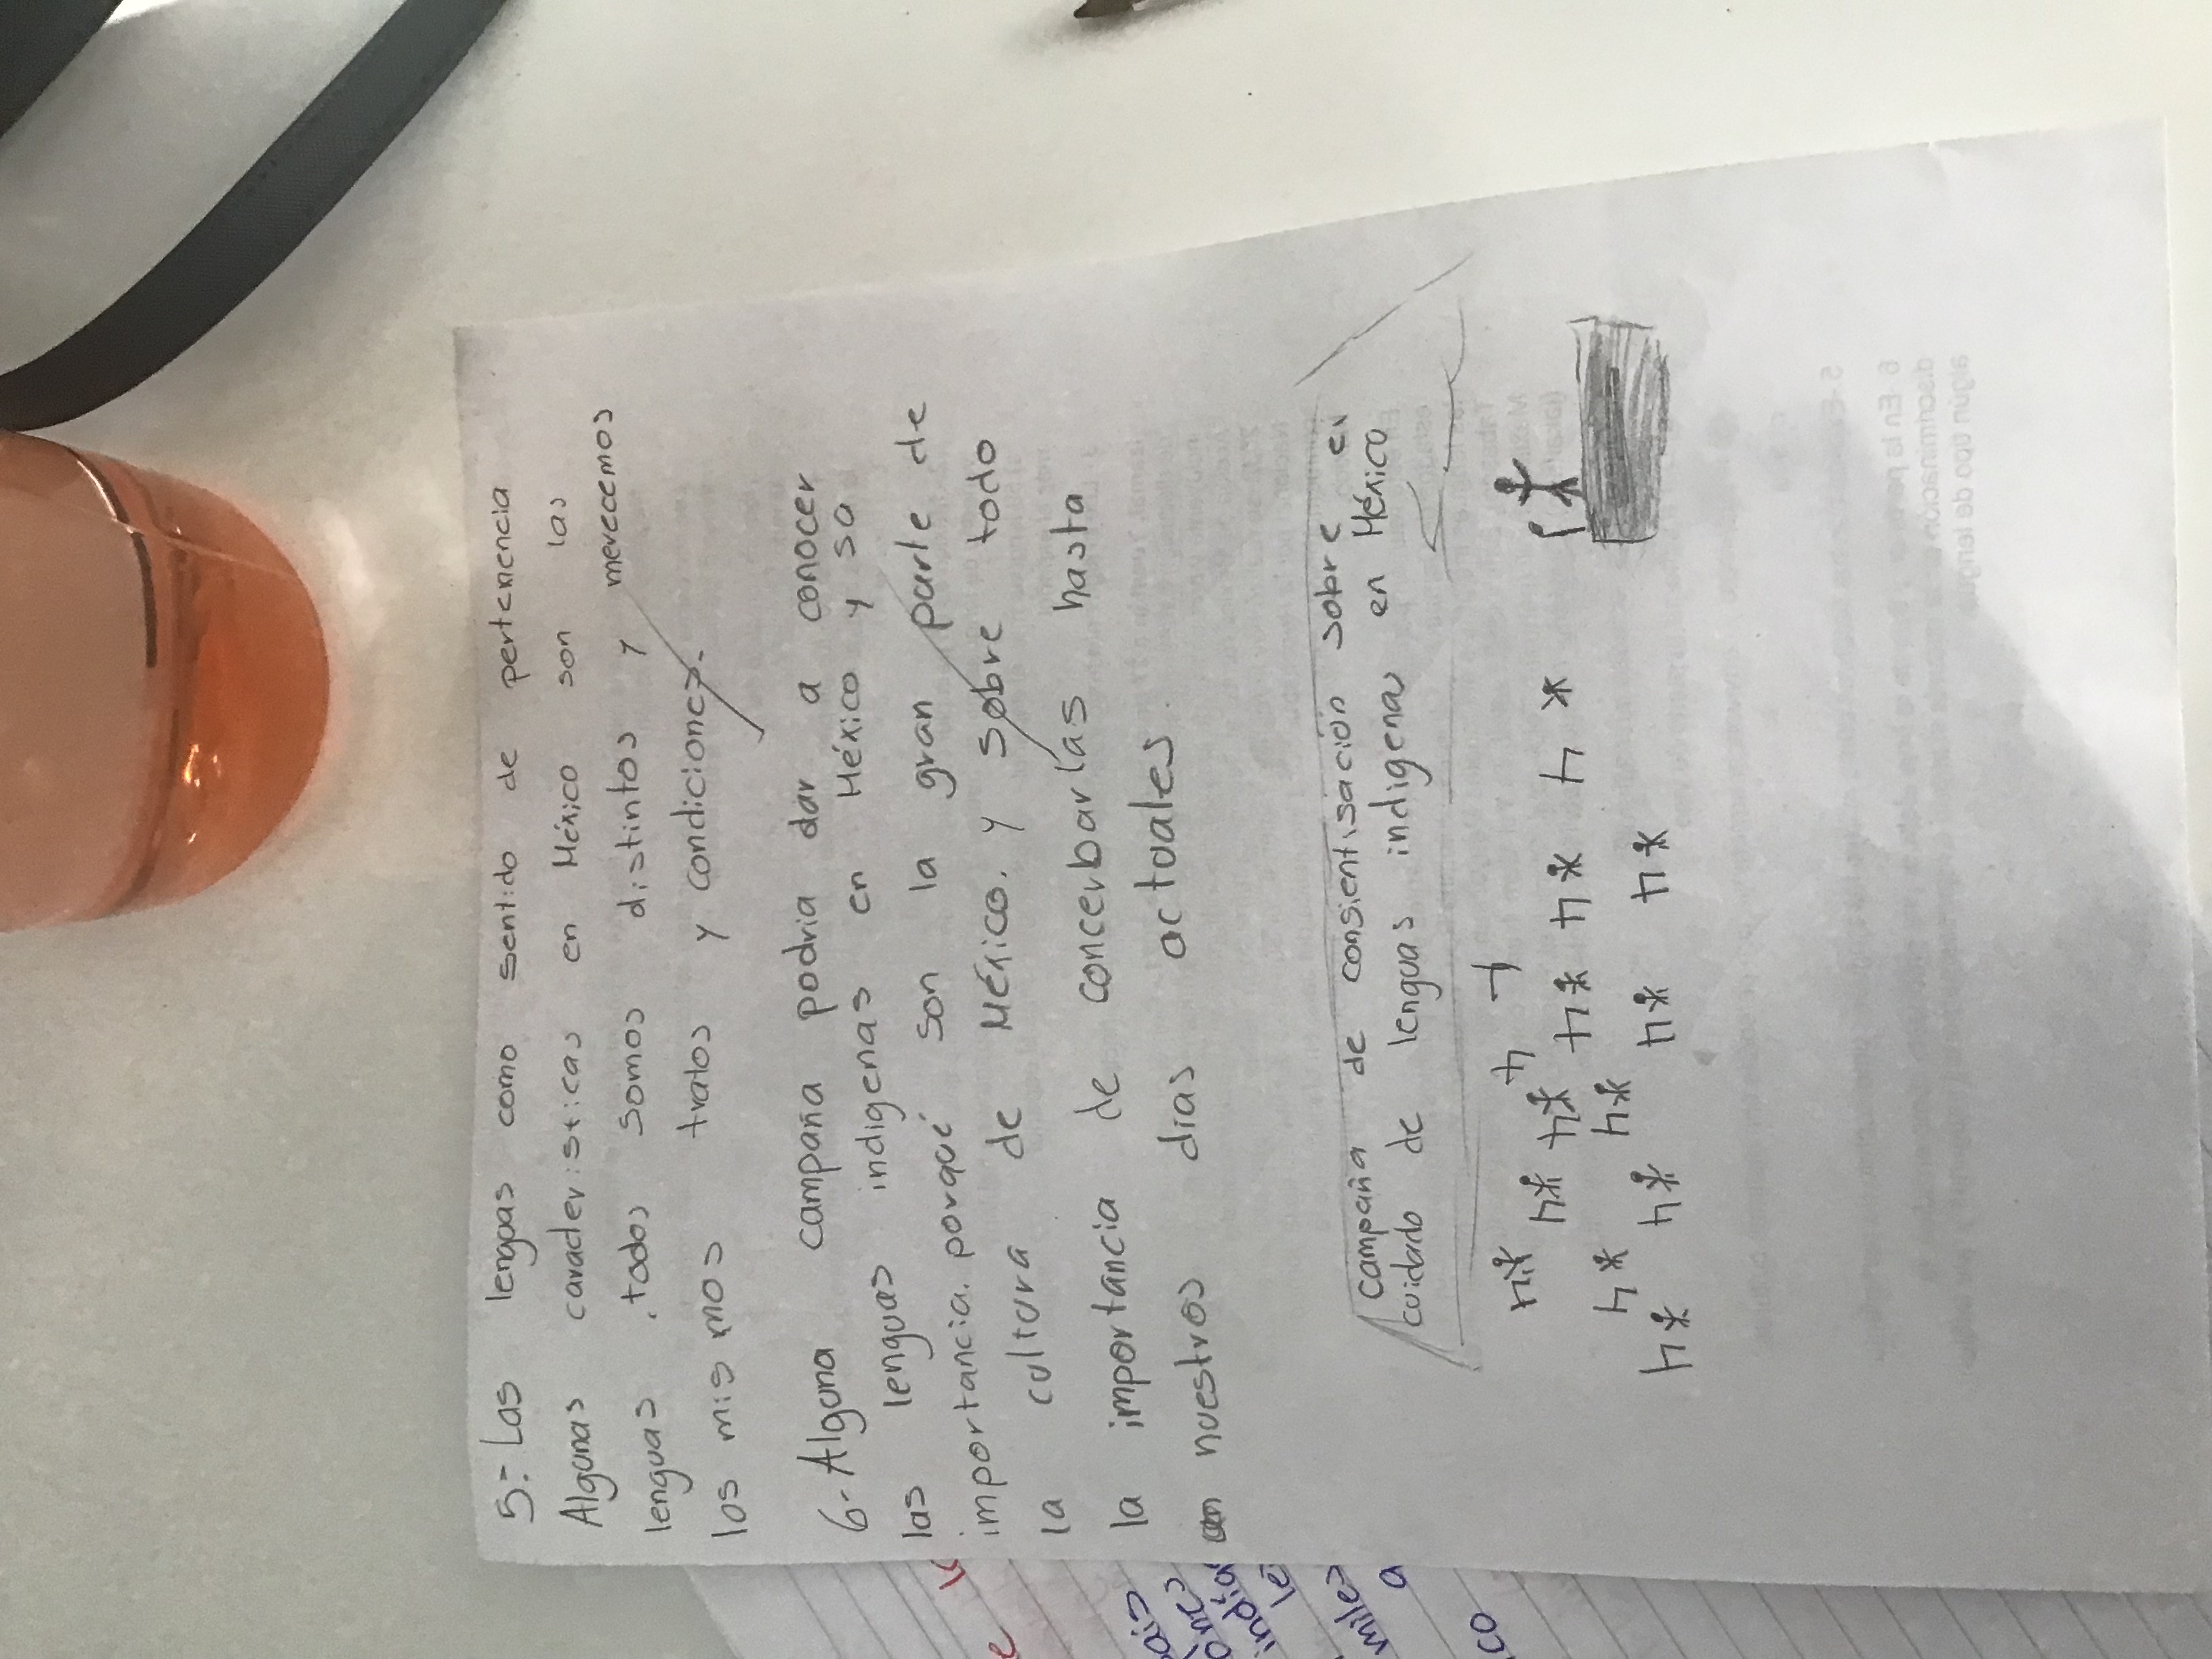 5.- Las lenguas como sentido de pertenencia
Algunas caracteristicas en México son las
lenguas .todos somos distintos y merecemos
los mismos tratos y condiciones.
6- Alguna campaña podria dar a conocer
las lenguas indigenas en México y sa
importancia. porqué son la gran parte de
la cultura de México. y sobre todo
la importancia de concerbarlas hasta
en nuestros dias actuales.
campaña de consientisación sobre el
cuidado de lenguas indigenas en México